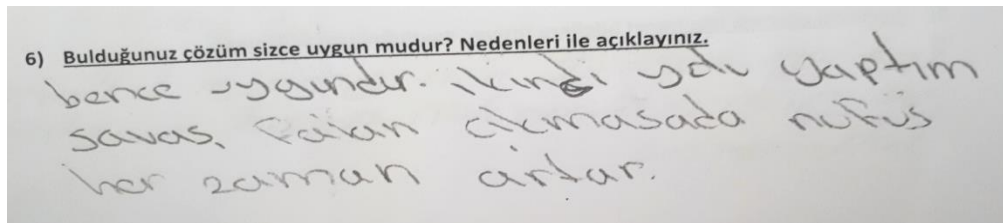 6) Bulduğunuz çözüm sizce uygun mudur? Nedenleri ile açıklayınız.
bence uygundur. ikinci yolu yaptım
savaş, falan çıkmasada nüfus
her zaman artar.